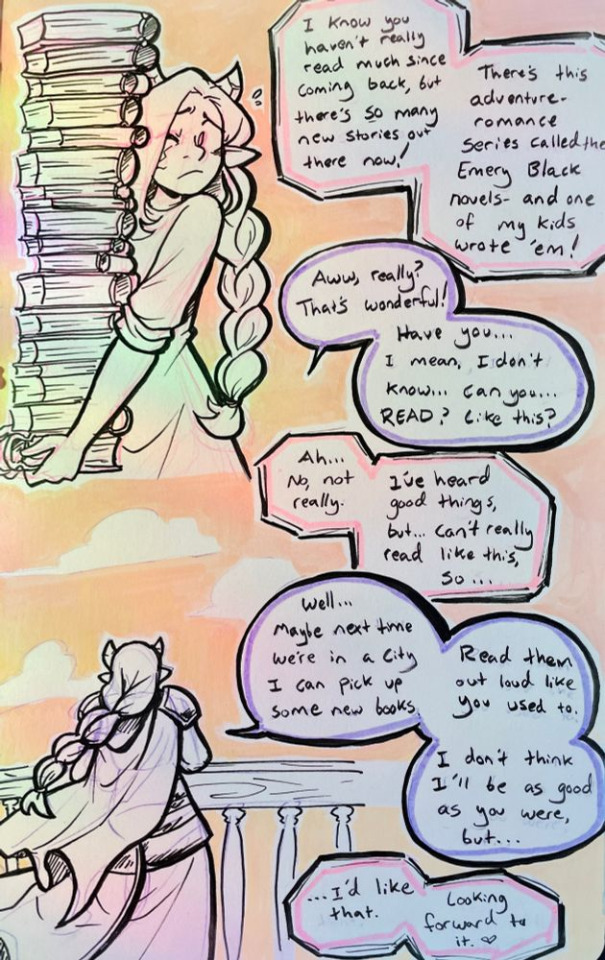 I know you
haven't really
read much since
coming back, but
there's so many
new stories out
there now!
There's this
adventure-
romance
series called the
Emery Black
novels- and one
of my kids
wrote 'em!
Aww, really?
That's wonderful!
Have you...
I mean, I don't
know... can you...
READ? Like this?
Ah...
No, not
really.
I've heard
good things,
but... can't really
read like this,
so...
Well...
Maybe next time
we're in a city
I can pick up
some new books.
Read them
out loud like
you used to.
I don't think
I'll be as good
as you were,
but...
...I'd like
that.
Looking
forward to
it. ♡